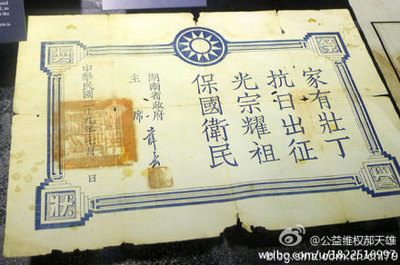 家有壯丁
抗日出征
光宗耀祖
保國衛民
湖南省政府
主席 薛岳
中華民國二十九年七月 日
狀
@公益维权郝天雄